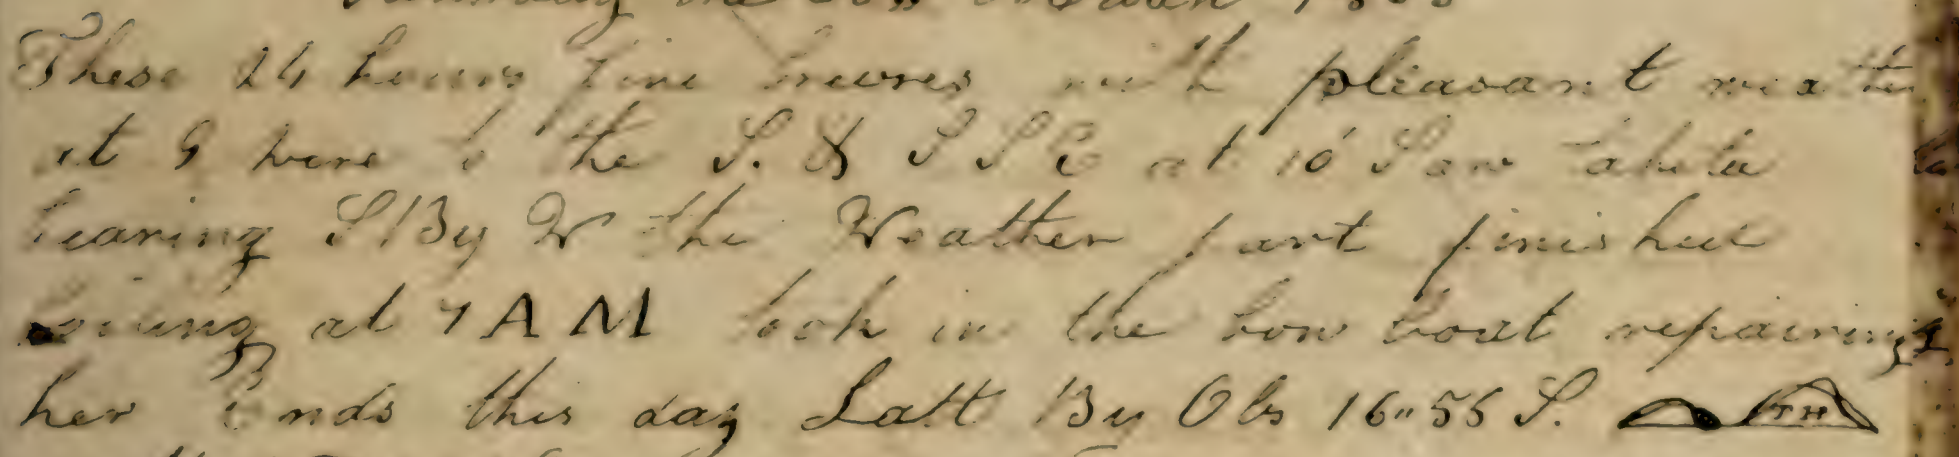 These 24 hours fine breeses with pleasant weather
at 9 wore to the S. & S S E at 10 Saw Tahita
bearing S By W the Weather part finished
boiling at 7 A M took in the bow boat repairing
her Ends this day Latt By Obs 16" 56 S. TH